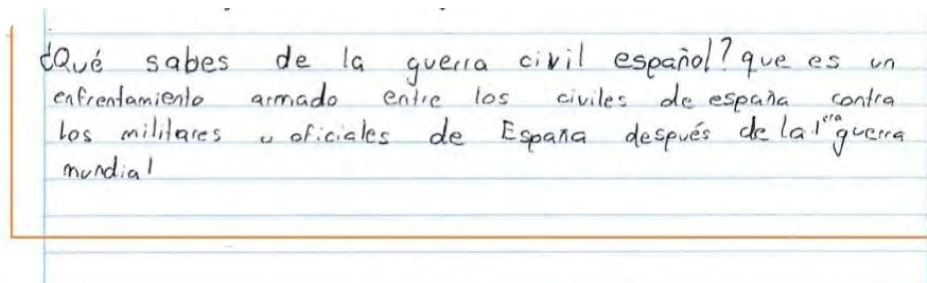 ¿Qué sabes de la guerra civil español? que es un
enfrentamiento armado entre los civiles de españa contra
los militares u oficiales de España después de la 1era guerra
mundial